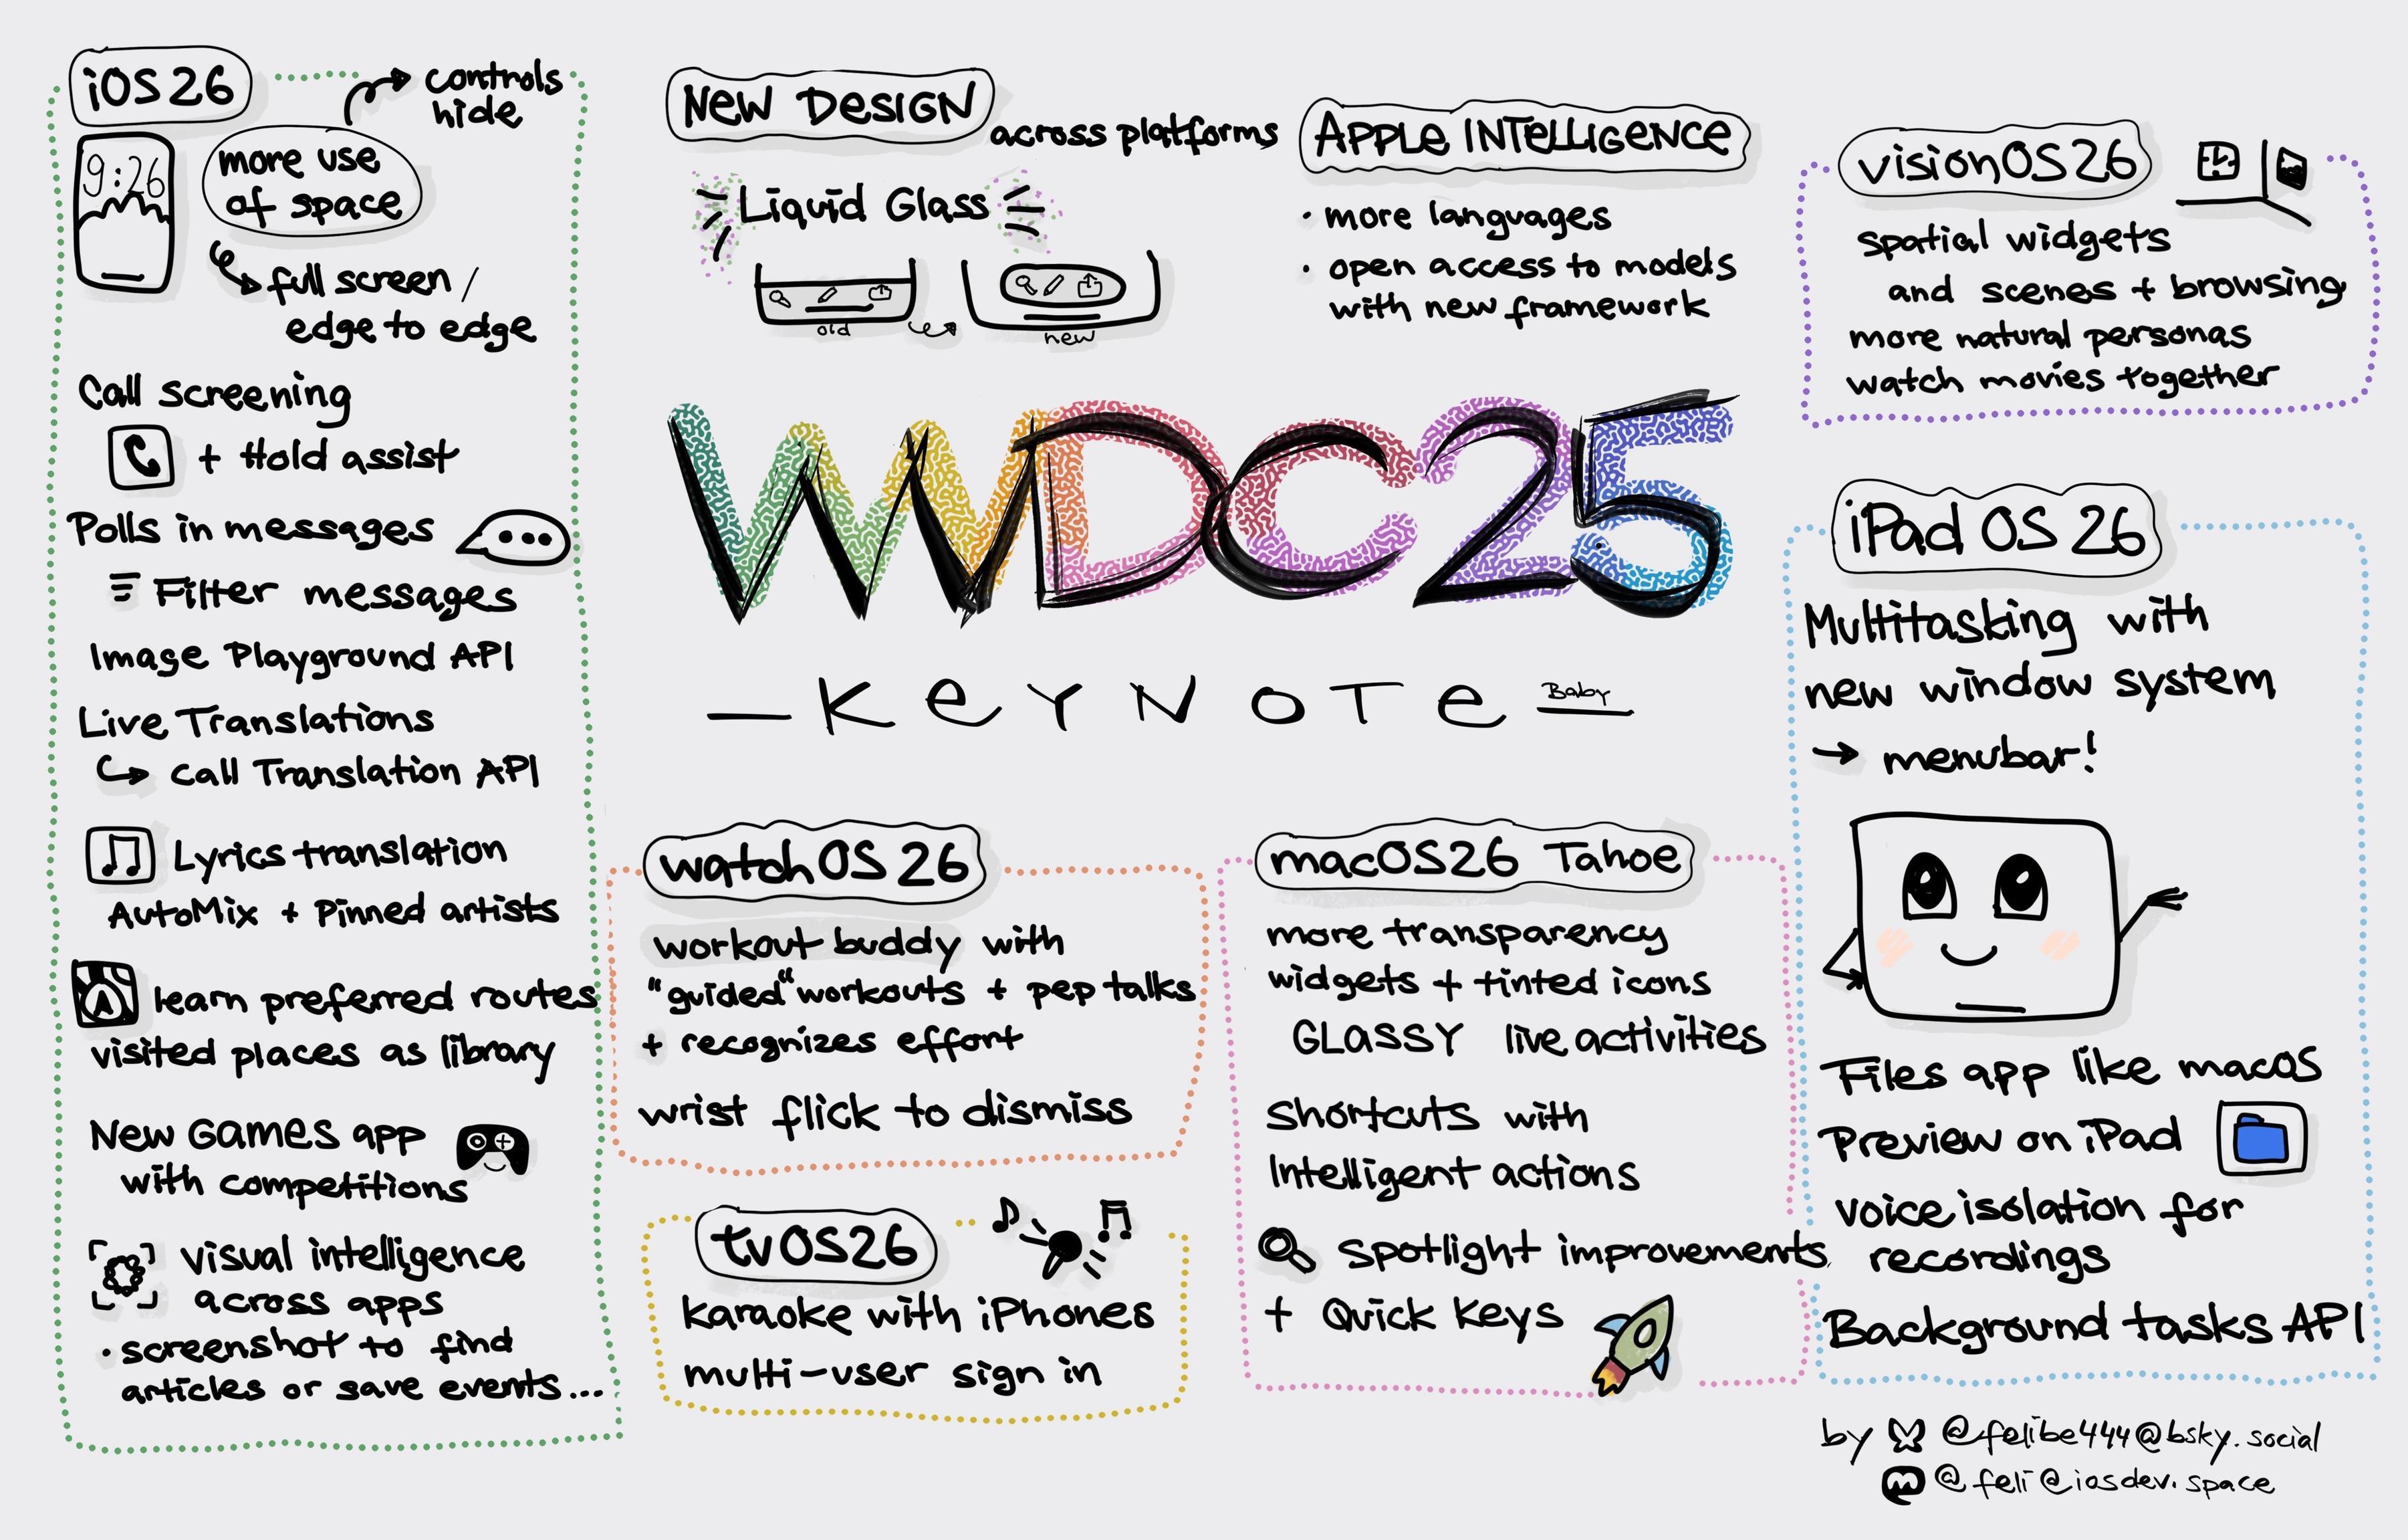 iOS 26
controls
hide
9:26
more use
of space
full screen /
edge to edge
Call screening
+ Hold assist
Polls in messages
Filter messages
Image Playground API
Live Translations
Call Translation API
Lyrics translation
AutoMix + Pinned artists
learn preferred routes
visited places as library
New GAMES app
with competitions
visual intelligence
across apps
· screenshot to find
articles or save events...
New Design
across platforms
Liquid Glass
old
new
APPLE INTELLIGENCE
· more languages
· open access to models
with new framework
WWDC25
— KEYNOTE —
Baby
watchOS 26
workout buddy with
"guided" workouts + pep talks
+ recognizes effort
wrist flick to dismiss
tvOS26
karaoke with iPhones
multi-user sign in
macOS26 Tahoe
more transparency
widgets + tinted icons
GLASSY live activities
Shortcuts with
Intelligent actions
Spotlight improvements
+ Quick Keys
visionOS26
spatial widgets
and scenes + browsing
more natural personas
watch movies together
iPad OS 26
Multitasking with
new window system
→ menubar!
Files app like macOS
Preview on iPad
voice isolation for
recordings
Background tasks API
by @felibe444@bsky.social
@feli@iosdev.space